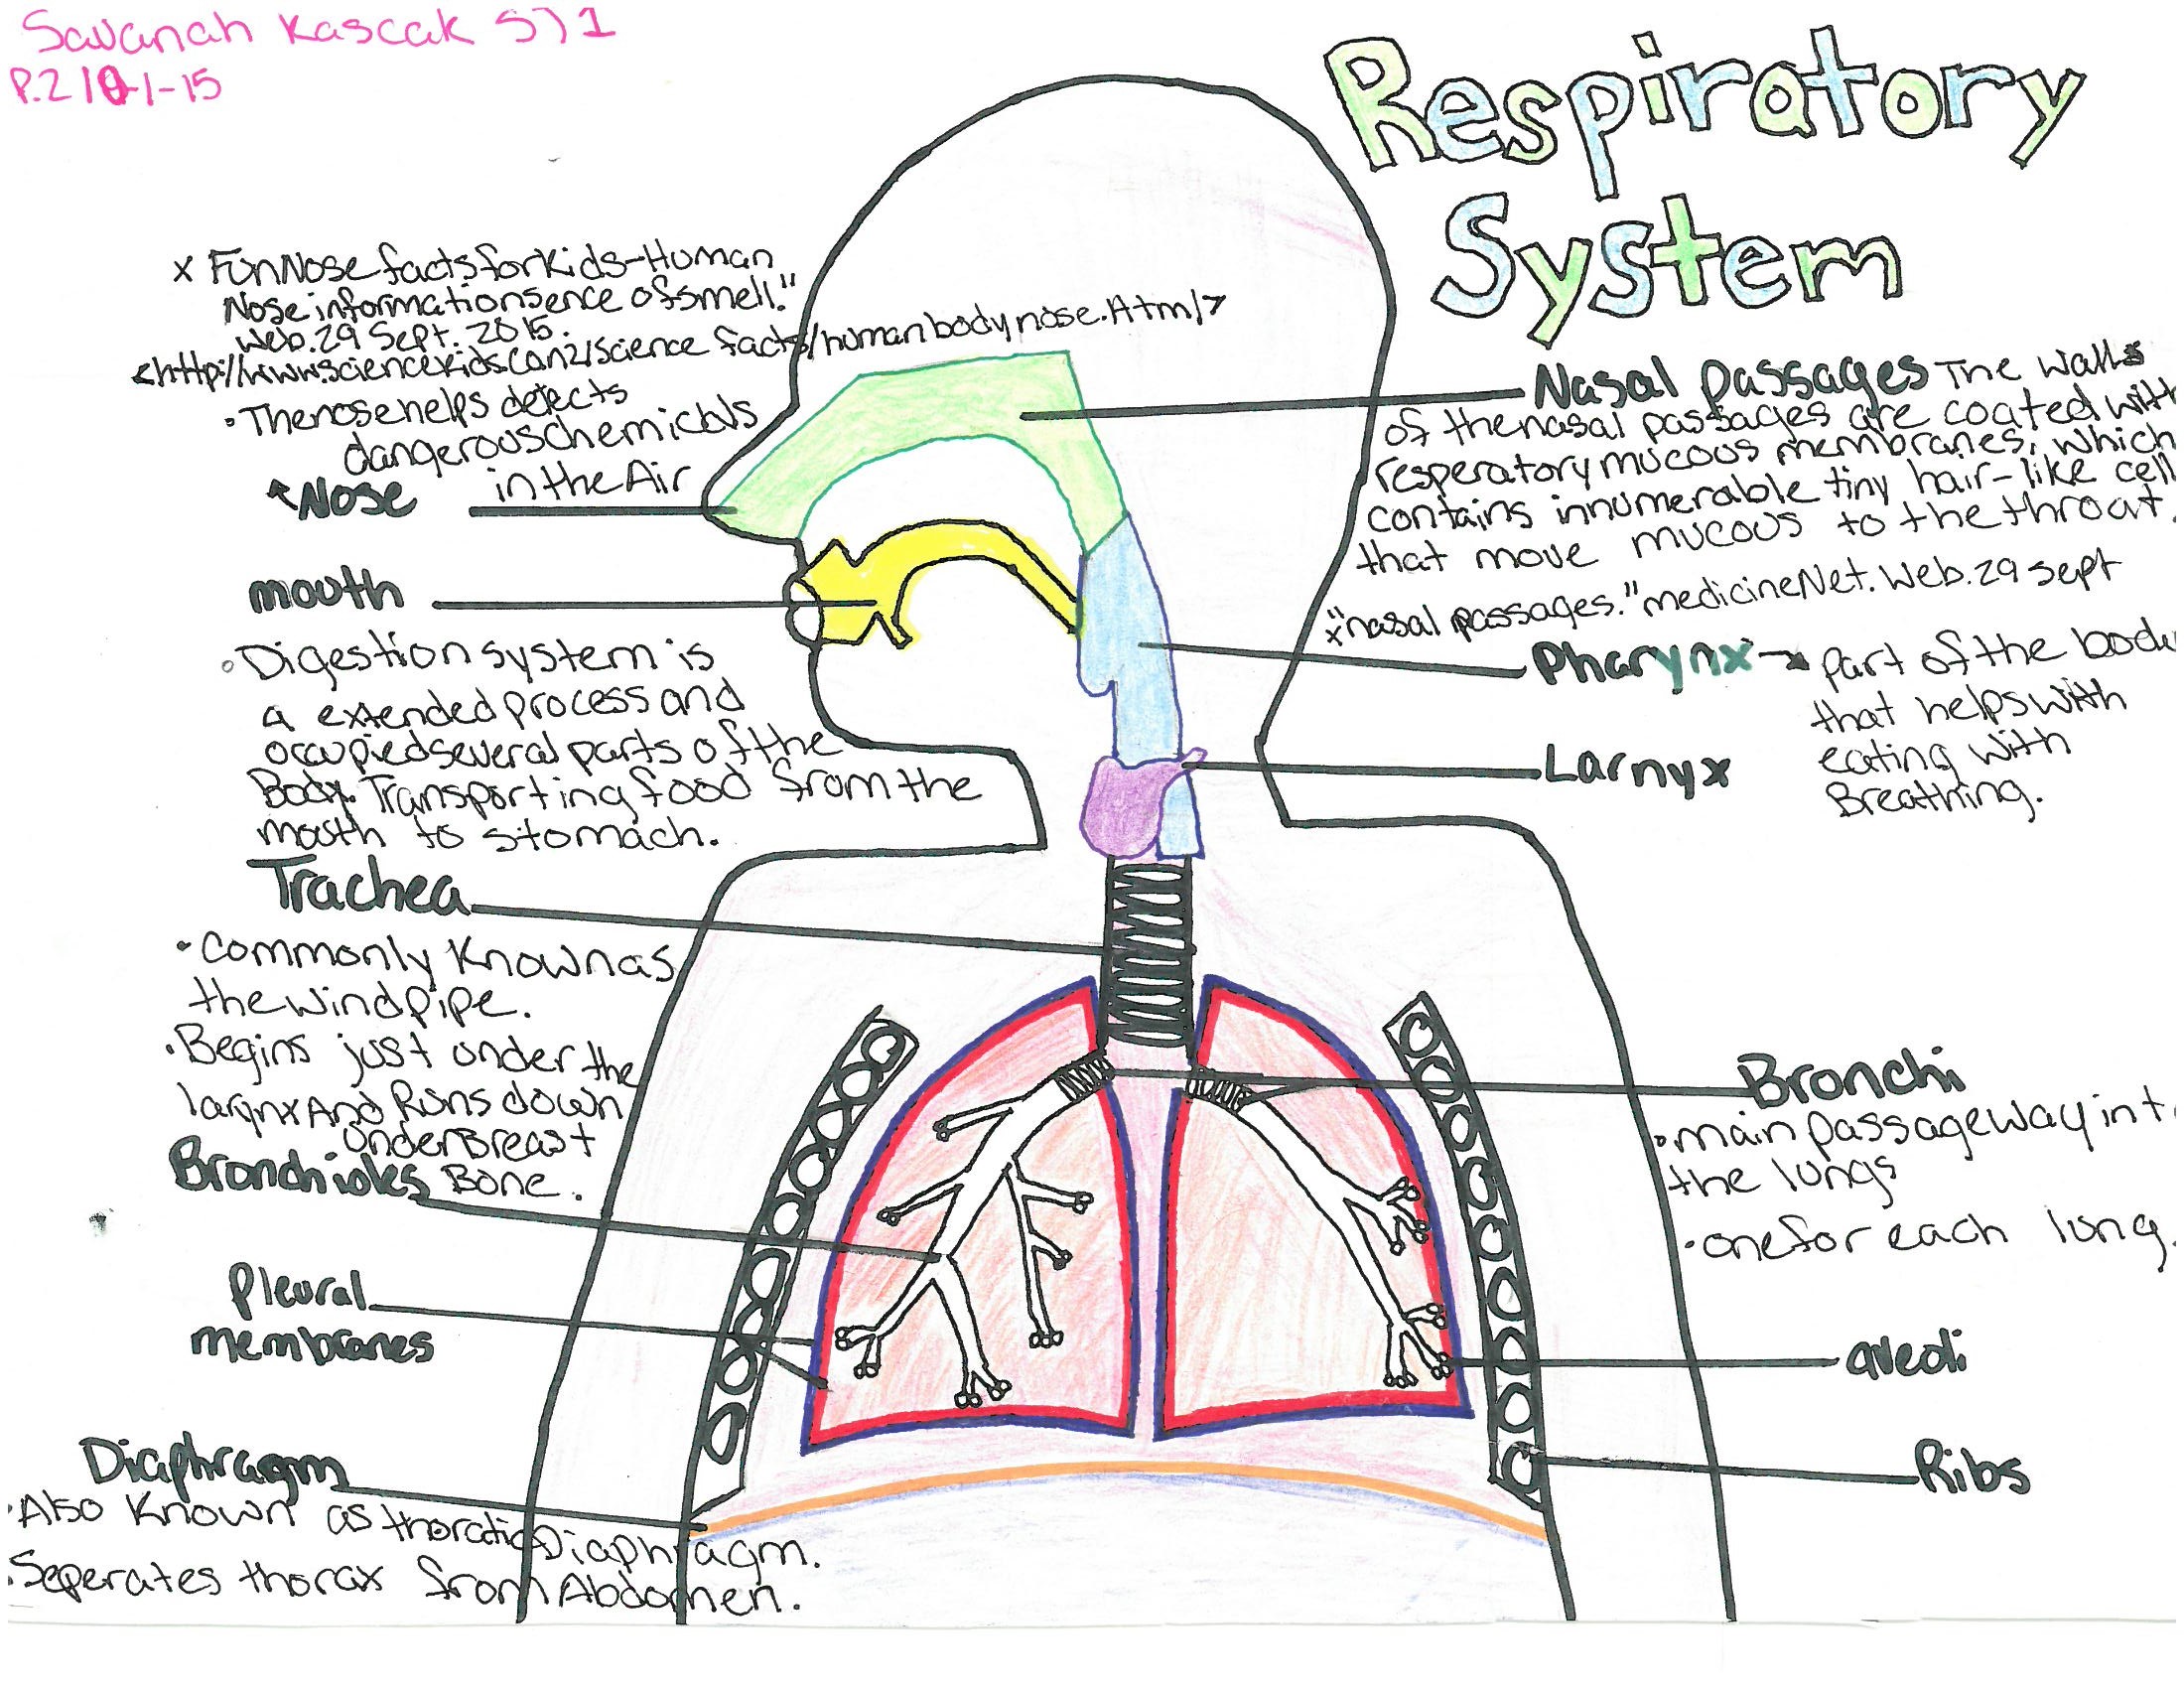 Savanah Kascak S71
P.2 10-1-15
Respiratory
System
x FunNose facts for Kids-Human
Nose information sence of smell."
Web. 29 Sept. 2015.
<http://www.sciencekids.co.nz/sciencefacts/humanbody/nose.html>
• The nose helps detects
dangerous chemicals
in the Air
Nose
mouth
• Digestion system is
a extended process and
occupied several parts of the
Body. Transporting food from the
mouth to stomach.
Trachea
• Commonly Known as
the windpipe.
• Begins just under the
larynx And Runs down
under Breast
Bone.
Bronchioles
Pleural
membranes
Diaphragm
• Also Known as thoratic Diaphragm.
• Seperates thorax from Abdomen.
Nasal passages The walls
of the nasal passages are coated with
resperatory mucous membranes, which
contains innumerable tiny hair-like cell
that move mucous to the throat.
x"nasal passages." medicineNet. Web. 29 sept
Pharynx → part of the body
that helps with
eating with
Breathing.
Larnyx
Bronchi
• main passageway int
the lungs
• one for each lung.
aveoli
Ribs